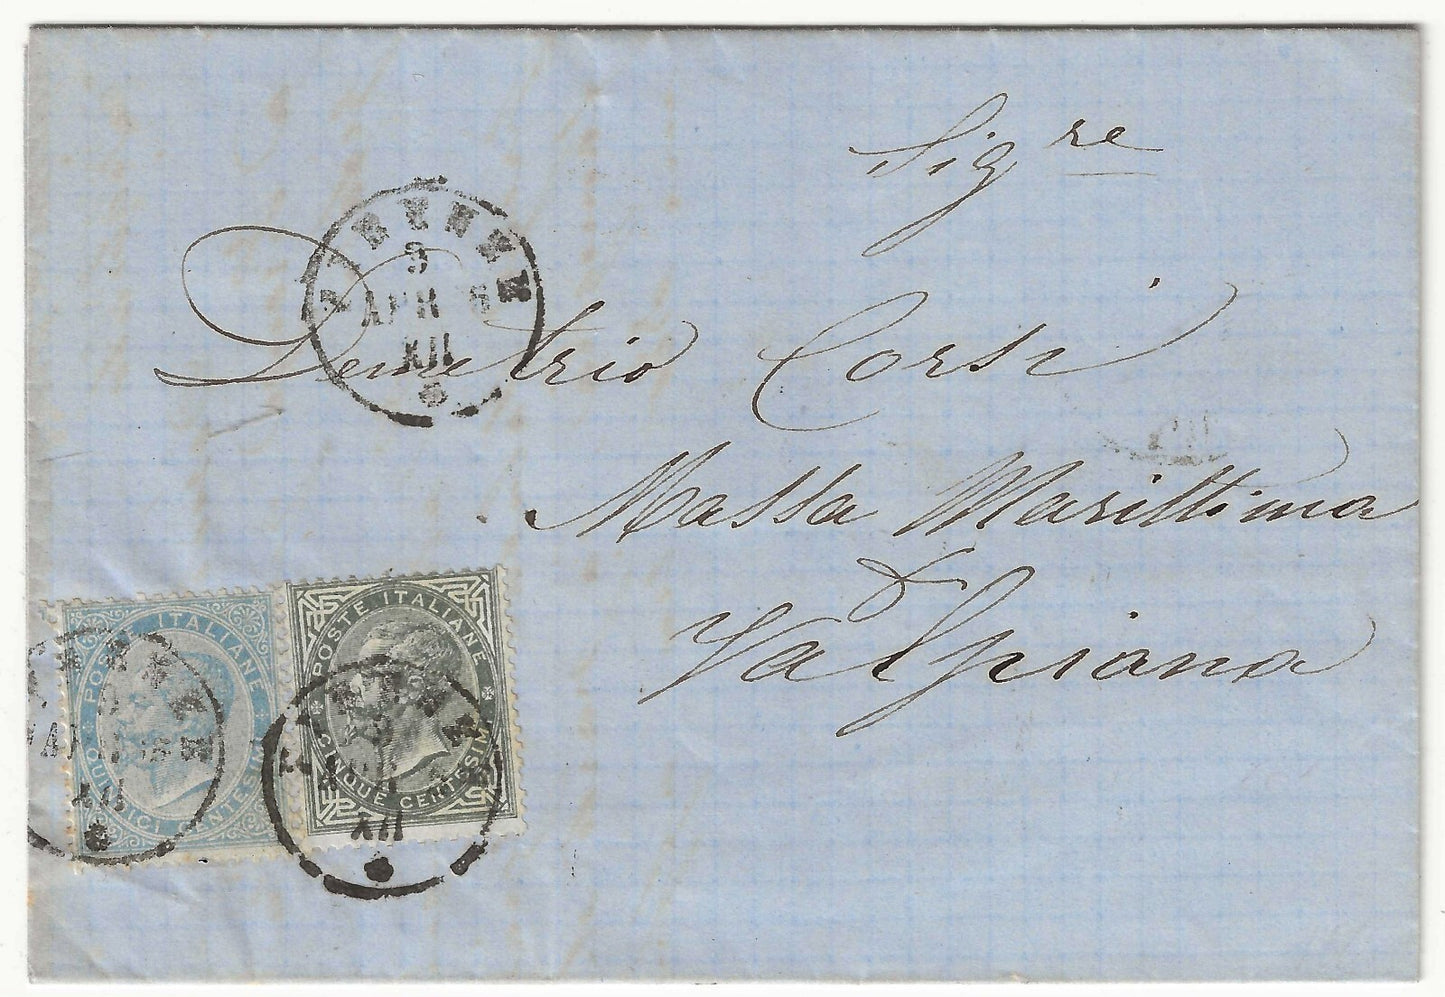 Sig.re
FIRENZE
3
APR 6
XII
Demetrio Corsi
Massa Marittima
Valpiana
POSTE ITALIANE
QUINDICI CENTESIMI
XII
POSTE ITALIANE
CINQUE CENTESIMI
XII